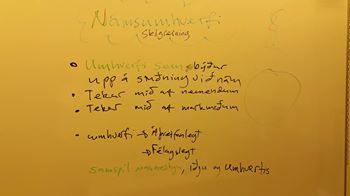 Námsumhverfi
Skilgreining
Umhverfi sem býður
upp á stuðning við nám
Tekur mið af nemendum
Tekur mið af markmiðum
umhverfi → Áþreifanlegt
→ Félagslegt
samspil manneskju, iðju og umhverfis